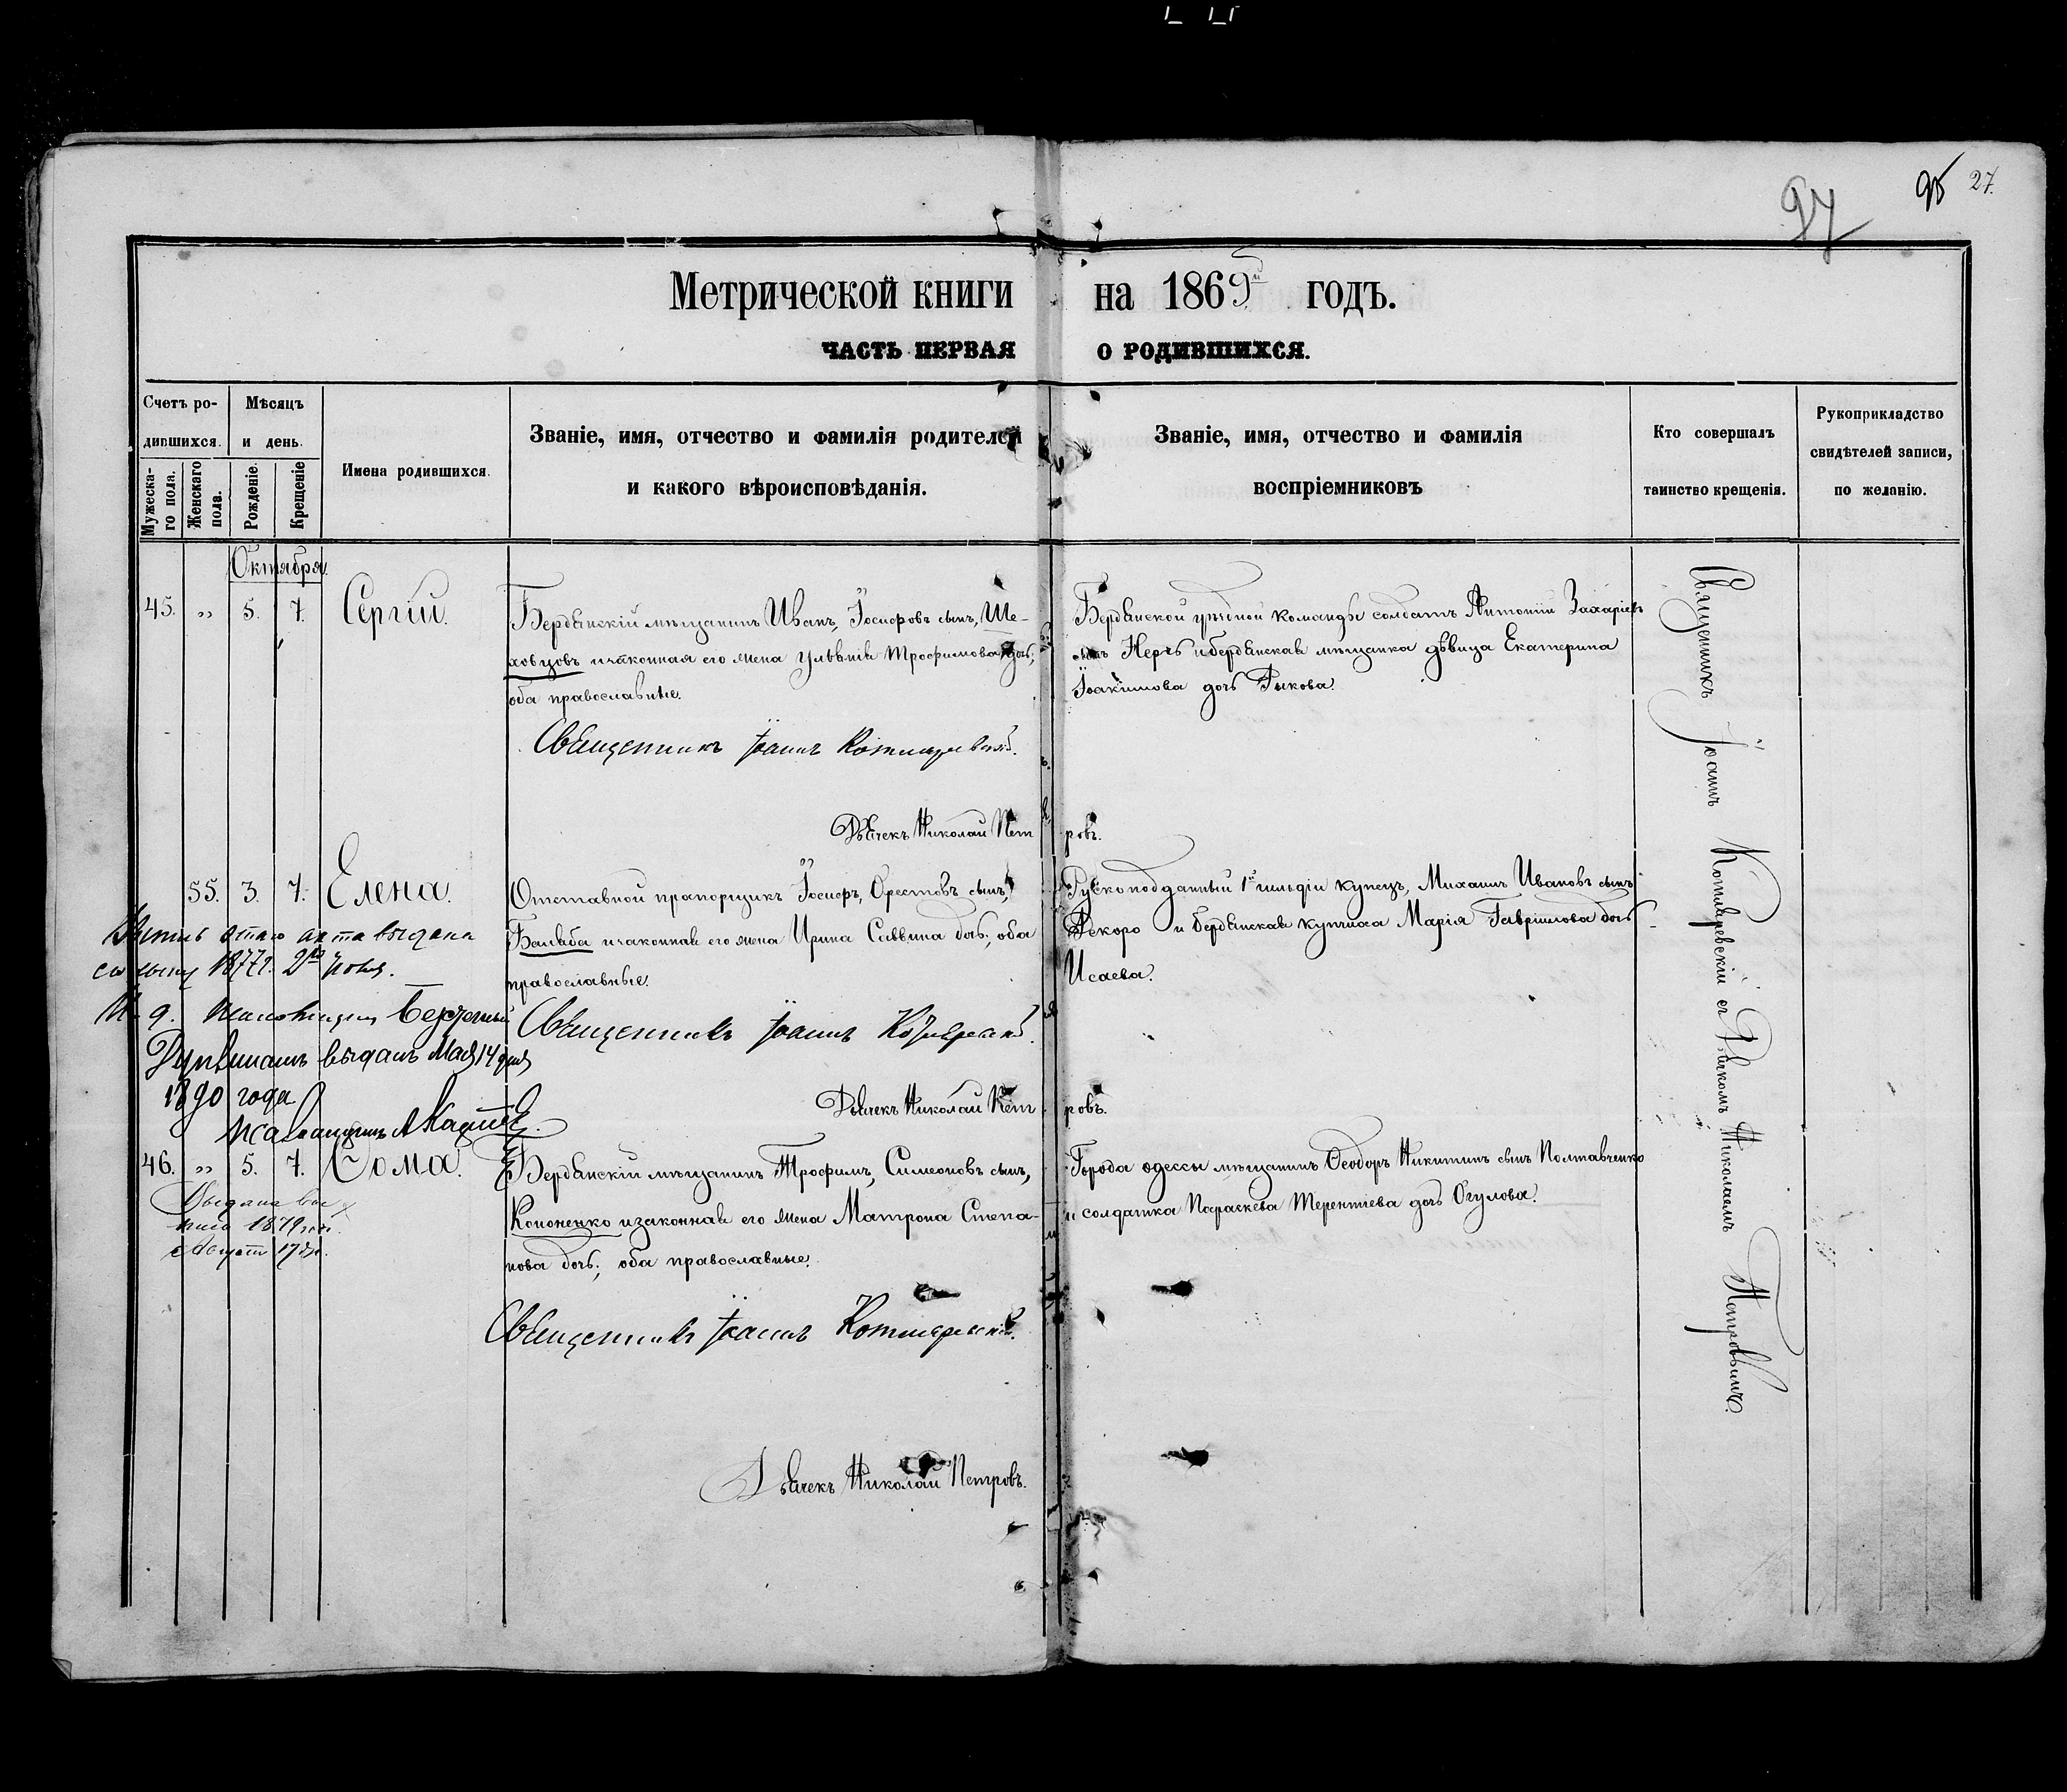 27.
97
Метрической книги на 1869й годъ.
ЧАСТЬ ПЕРВАЯ О РОДИВШИХСЯ.
Счетъ родившихся.
Мѣсяцъ и день.
Мужескаго пола.
Женскаго пола.
Рожденіе.
Крещеніе
Имена родившихся.
Званіе, имя, отчество и фамилія родителей
и какого вѣроисповѣданія.
Званіе, имя, отчество и фамилія
воспріемниковъ
Кто совершалъ
таинство крещенія.
Рукоприкладство
свидѣтелей записи,
по желанію.
Октября.
45. „ 5. 7. Сергій.
Бердянскій мѣщанинъ Иванъ, Іосифовъ сынъ, Ше-
ховцовъ и законная его жена Трофимова дочь,
оба православные.
Священникъ Іоаннъ Котляревскій.
Дьячекъ Николай Петровъ.
Бердянской уѣздной команды солдатъ Антоній Захаріевъ
сынъ и бердянская мѣщанка дѣвица Екатерина
Іоакимова дочь Рыкова.
55. 3. 7. Елена.
Отставной прапорщикъ Іосифъ, Орестовъ сынъ,
Балваба и законная его жена Ирина Саввина дочь; оба
православные.
Священникъ Іоаннъ
Дьячекъ Николай Петровъ.
Рускоподданный 1й гильдіи купецъ, Михаилъ Ивановъ сынъ
Декоро и бердянская купчиха Марія Гавріилова дочь
Исаева.
акта выдана
1877г. 2го Іюня.
И. д.
выданъ Мая 14 дня
1890 года
46. „ 5. 7. Ѳома.
Бердянскій мѣщанинъ Трофимъ, Симеоновъ сынъ,
Кононенко и законная его жена Матрона Степа-
нова дочь; оба православные.
Священникъ Іоаннъ Котляревскій.
Дьячекъ Николай Петровъ.
Города одессы мѣщанинъ Ѳеодоръ Никитинъ сынъ Полтавченко
и солдатка Параскева Терентіева дочь Огулова.
Выдана вы
пись 1879 года
Августа 17 дн.
Священникъ Іоаннъ Котляревскій съ Дьячкомъ Николаемъ Петровымъ.